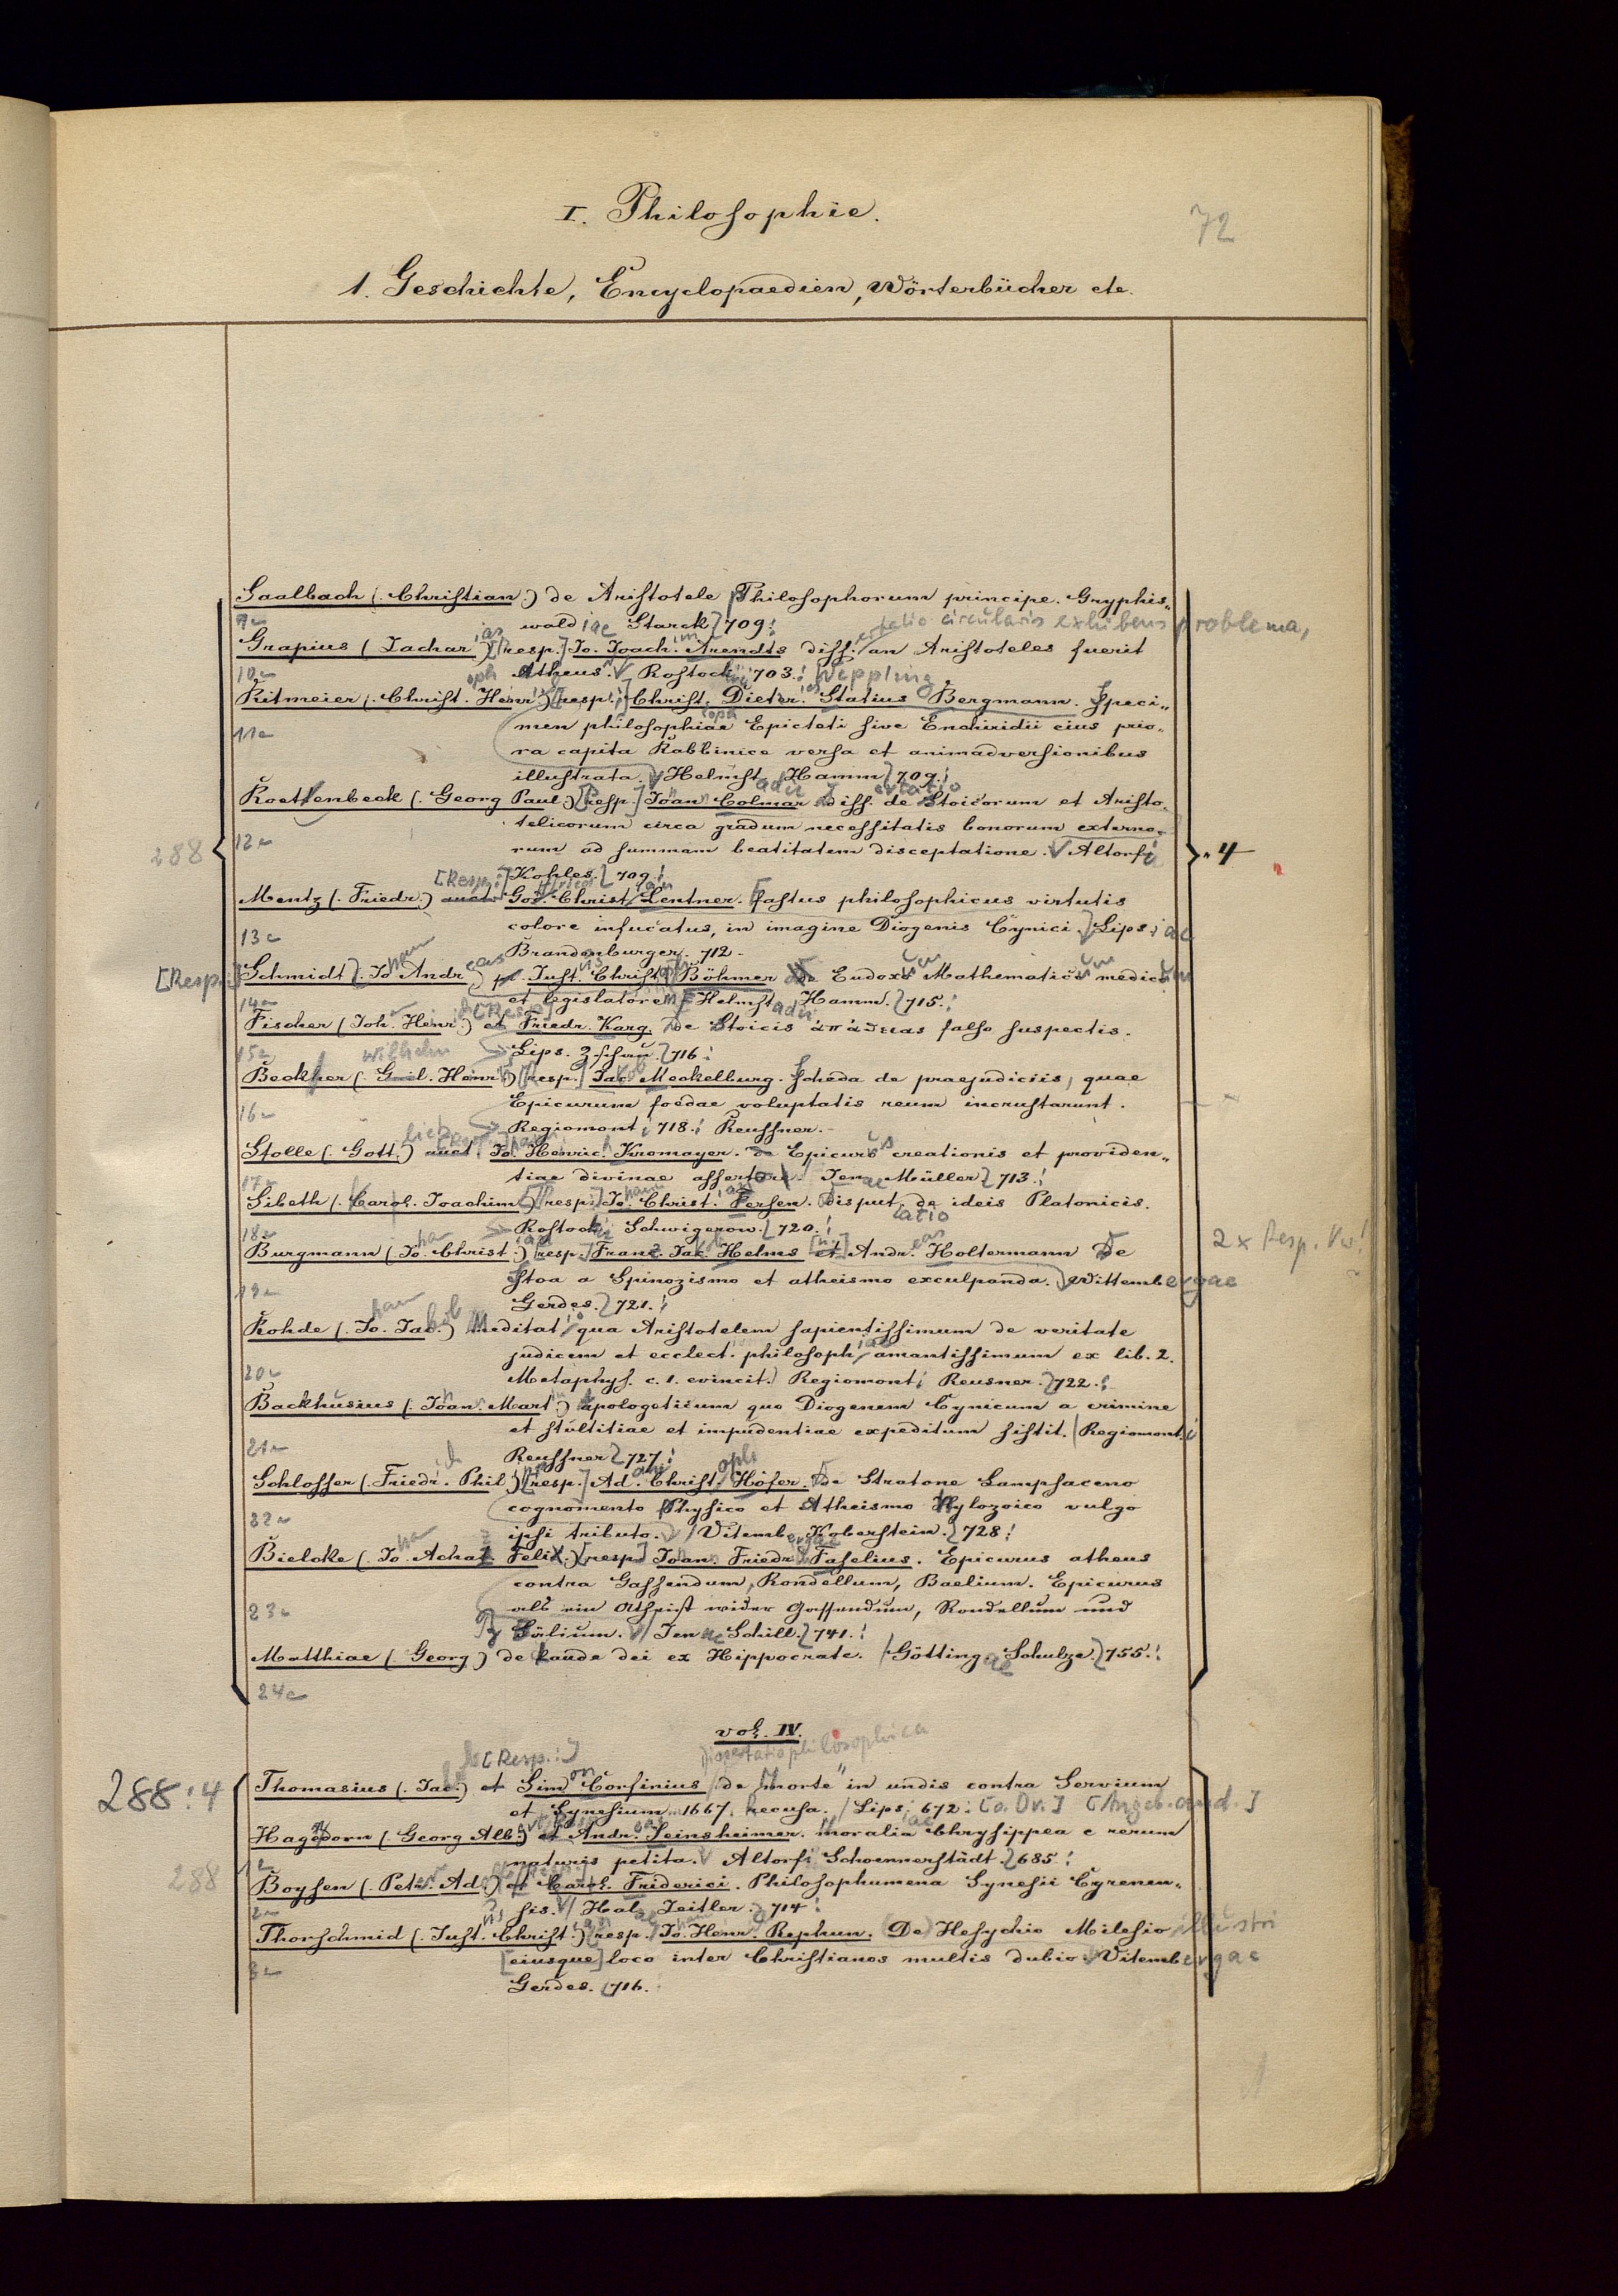 I. Philosophie.
72
1. Geschichte, Encyclopaedien, Wörterbücher etc.
Saalbach (. Christian.) de Aristotele Philosophorum principe. Gryphis„
9 wald iae Starck 709.
tatio circularis exhibens problema,
Grapius (Zachar ias) [resp.] Jo. Joach. im Arendts diss. an Aristoteles fuerit
10 Atheus. Rostoch 703. Weppling
Kitmeier (. Christ. oph Henr.) [resp.] Christ. Dietr. Statius Bergmann. Speci„
men philosophiae Epicteti sive Enchiridii eius prio„
11 ra capita Rabbinice versa et animadversionibus
illustrata. Helmst adii Hamm 709.
Roettenbeck (. Georg Paul.) [resp.] Joan Colmar diss. ertatio de Stoicorum et Aristo„
telicorum circa gradum necessitatis bonorum externo„
288 12 rum ad summam beatitatem disceptatione. Altorfi „4
Kohles. 709.
Mentz (. Friedr.) [Resp.:] auct. Go. Christ. Lentner. Fastus philosophicus virtutis
13 colore infucatus, in imagine Diogenis Cynici. Lips. iae
Brandenburger. 712.
[Resp.] Schmidt (. Jo. hann Andr eas) Just. us Christ. oph Böhmer de Eudoxo um Mathematico um medico um
14 et legislatore. Helmst adii Hamm. 715.
Fischer (Joh. Henr.) et [Resp.] Friedr. Karg. De Stoicis ἀπάθειας falso suspectis.
15 Lips. Zschau. 716.
Wilhelm
Beckher (. Guil. Henr.) [resp.] Jac. ob Meckelburg. Scheda de praejudiciis, quae
16 Epicurum foedae voluptatis reum incrustarunt.
Regiomont. i 718. Reussner.
Stolle (. Gott. lieb) auct. Jo. Henric. Kromayer. de Epicuro us creationis et providen„
17 tiae divinae assertore. Jen ae Müller 713.
Sibeth (. Carol. Joachim) [resp.] Jo. hann Christ. ian Fersen. Disput. atio de ideis Platonicis.
18 Rostochi Schwigerow. 720.
Burgmann (. Jo. ha Christ. ian) [resp.] Franz Jac. ob Helms [u.] et Andr. eas Holtermann De 2 x Resp. Vw!
19 Stoa a Spinozismo et atheismo exculpanda. Wittemb ergae
Gerdes. 721.
Rohde (. Jo. han Jac. bob) Meditat. io qua Aristotelem sapientissimum de veritate
judicem et ecclect. philosoph iae amantissimum ex lib. 2.
20 Metaphys. c. 1. evincit. Regiomont i Reusner. 722.
Backhusius (. Joan. Mart.) Apologeticum quo Diogenem Cynicum a crimine
et stultitiae et impudentiae expeditum sistit. Regiomont. i
21 Reussner 727.
Schlosser (. Friedr. ich Phil.) [resp.] Ad. am Christ. oph Höfer. De Stratone Lampsaceno
cognomento Physico et Atheismo Hylozoico vulgo
22 ipsi tributo. Vitemb ergae Koberstein. 728.
Bielcke (. Jo. ha Achat. Felix.) [resp.] Joan. Friedr. Faselius. Epicurus atheus
contra Gassendum, Rondellum, Baelium. Epicurus
23 als ein Atheist wider Gassendum, Rondellum und
Bälium. Jen ae Schill. 741.
Matthiae (. Georg) de laude dei ex Hippocrate. Götting ae Schulze. 755.
24
vol. IV.
Dissertatio philosophica
288:4 Thomasius (. Jac.) et [Resp.:] Sim on Corsinius de Morte in undis contra Servium
et Synesium 1667. recusa. Lips. 672. [o. Dr.]
Hagedorn (. Georg Alb.) et Andr. eas Leinsheimer. Moralia Chrysippea e rerum
288 1 naturis petita. Altorfi Schoennerstädt. 685.
Boysen (. Petr. Ad.) et Carol. Friderici. Philosophumena Synesii Cyrenen„
2 sis. Hal ae Zeitler. 714
Thorschmid (. Just. us Christ. ian) [resp.] Jo. hann Henr. Rephun. De Hesychio Milesio illustri
3 [eiusque] loco inter Christianos multis dubio. Vitemb ergae
Gerdes. 716.